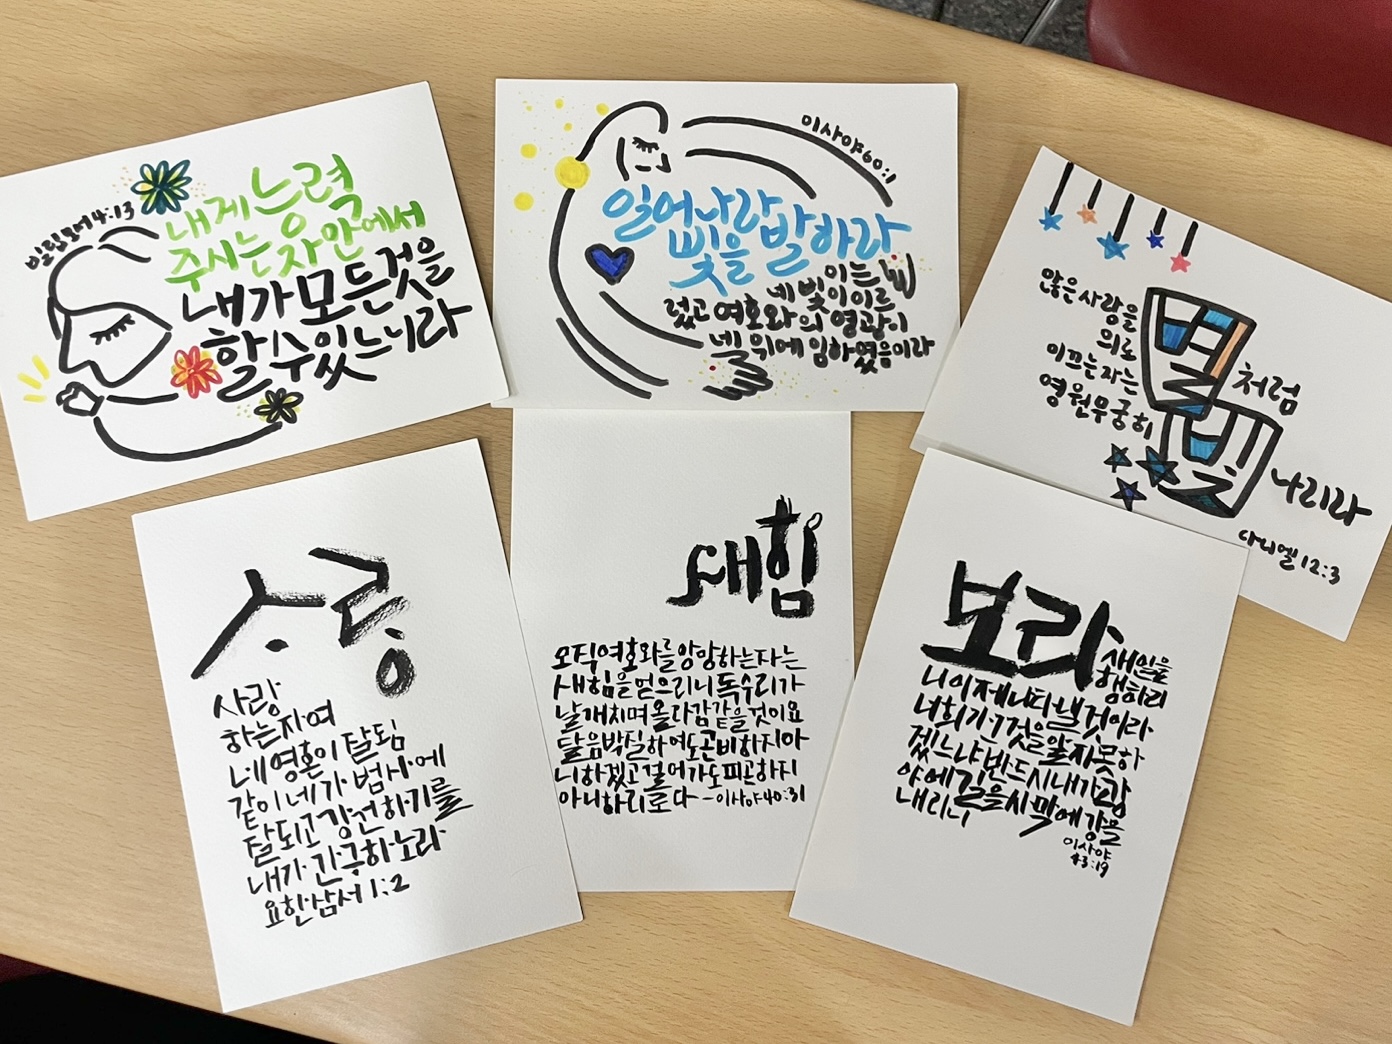 빌립보서 4:13
내게 능력
주시는 자 안에서
내가 모든 것을
할 수 있느니라
이사야 60:1
일어나라
빛을 발하라
이는
네 빛이 이르
렀고 여호와의 영광이
네 위에 임하였음이라
많은 사람을
의로
이끄는 자는
영원무궁히
별처럼
빛나리라
다니엘 12:3
사랑
사랑
하는 자여
네 영혼이 잘됨
같이 네가 범사에
잘되고 강건하기를
내가 간구하노라
요한삼서 1:2
새힘
오직 여호와를 앙망하는 자는
새 힘을 얻으리니 독수리가
날개치며 올라감 같을 것이요
달음박질하여도 곤비하지 아
니하겠고 걸어가도 피곤하지
아니하리로다 - 이사야 40:31
보라
새 일을
행하리
니 이제 나타낼 것이라
너희가 그것을 알지 못하
겠느냐 반드시 내가 광
야에 길을 사막에 강을
내리니
이사야
43:19